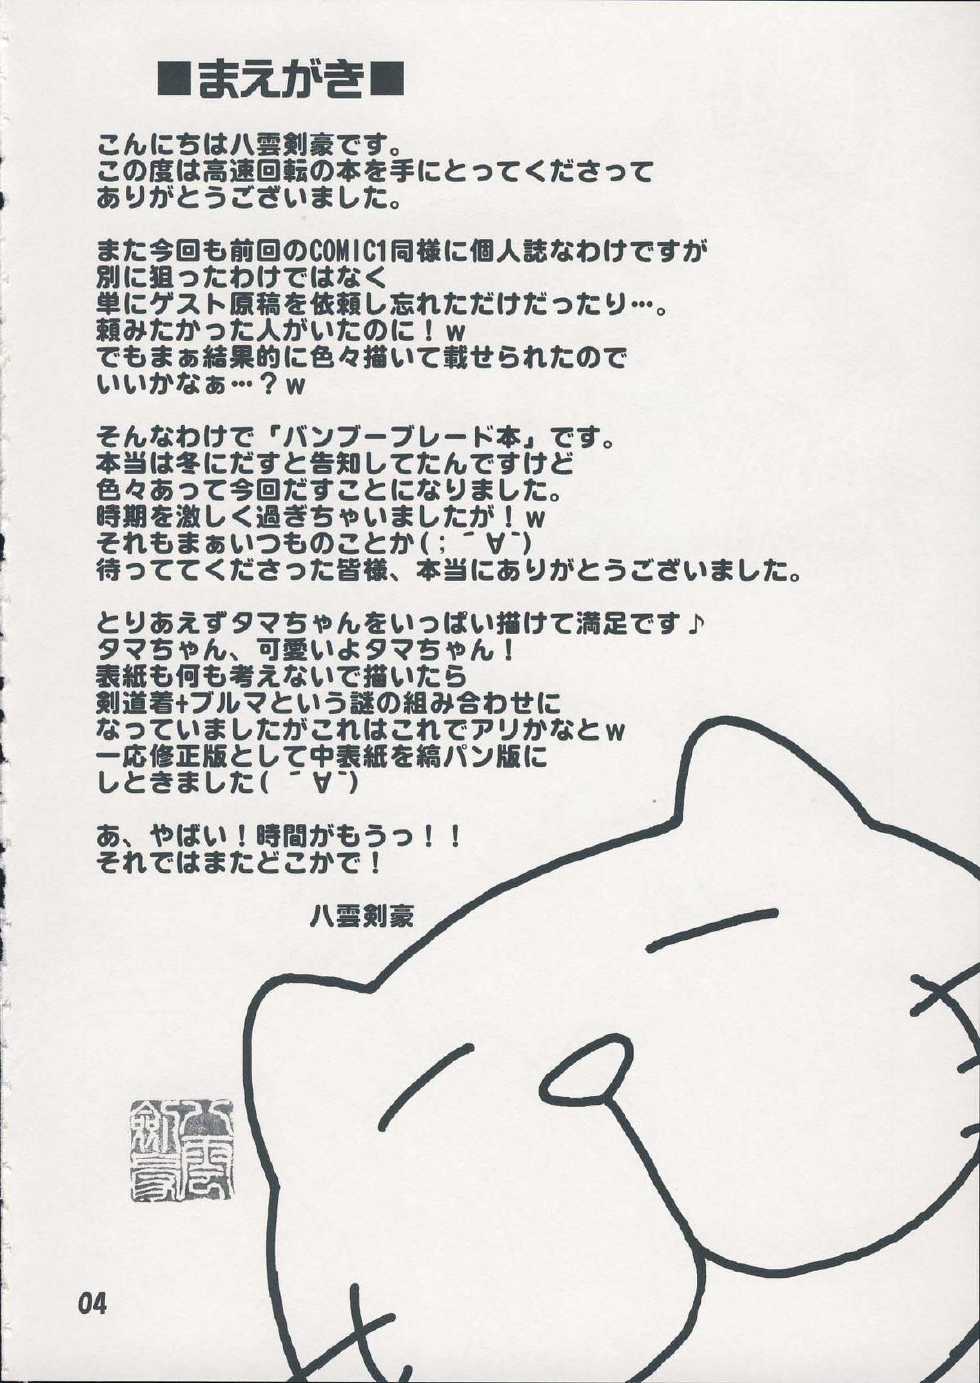 ■まえがき■
こんにちは八雲剣豪です。
この度は高速回転の本を手にとってくださって
ありがとうございました。
また今回も前回のCOMIC1同様に個人誌なわけですが
別に狙ったわけではなく
単にゲスト原稿を依頼し忘れただけだったり…。
頼みたかった人がいたのに！w
でもまぁ結果的に色々描いて載せられたので
いいかなぁ…？w
そんなわけで「バンブーブレード本」です。
本当は冬にだすと告知してたんですけど
色々あって今回だすことになりました。
時期を激しく過ぎちゃいましたが！w
それもまぁいつものことか(；´∀`)
待っててくださった皆様、本当にありがとうございました。
とりあえずタマちゃんをいっぱい描けて満足です♪
タマちゃん、可愛いよタマちゃん！
表紙も何も考えないで描いたら
剣道着+ブルマという謎の組み合わせに
なっていましたがこれはこれでアリかなとw
一応修正版として中表紙を縞パン版に
しときました(´∀`)
あ、やばい！時間がもうっ！！
それではまたどこかで！
八雲剣豪
八雲
剣豪
04